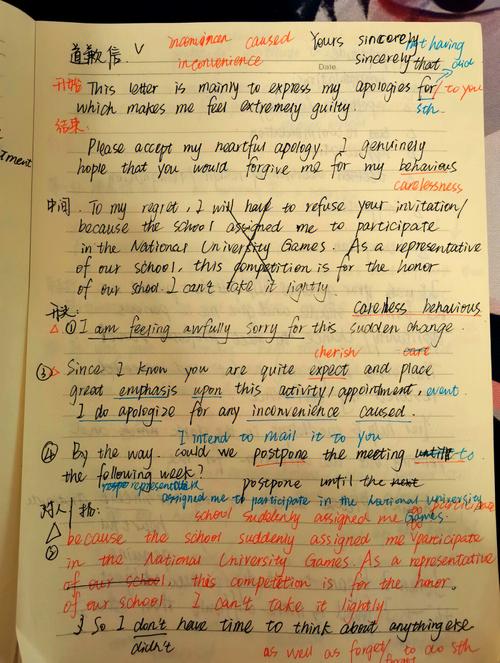 道歉信. V inconvenien caused Yours sincerely not having
inconvenience Date. sincerely that did
开始 This letter is mainly to express my apologies for / to you
which makes me feel extremely guilty. sth.
结束:
Please accept my heartful apology. I genuinely
hope that you would forgive me for my behavious
carelessness
中间. To my regret, I will have to refuse your invitation/
because the school assigned me to participate
in the National University Games. As a representative
of our school, this competition is for the honor
of our school. I can't take it lightly.
开头: Careless behavious
△ ① I am feeling awfully sorry for this sudden change.
cherish care
③ Since I know you are quite expect and place
great emphasis upon this activity/appointment, event.
I do apologize for any inconvenience caused.
I intend to mail it to you
④ By the way. could we postpone the meeting until to
the following week? postpone until the next
representative assigned me to participate in the National University
对人/物: school suddenly assigned me to participate Games.
△ ⑤ because the school suddenly assigned me participate
in the National University Games. As a representative
of our school this competition is for the honor.
of our school. I can't take it lightly
3 So I don't have time to think about anything else
didn't as well as forget to do sth
forgot
tment